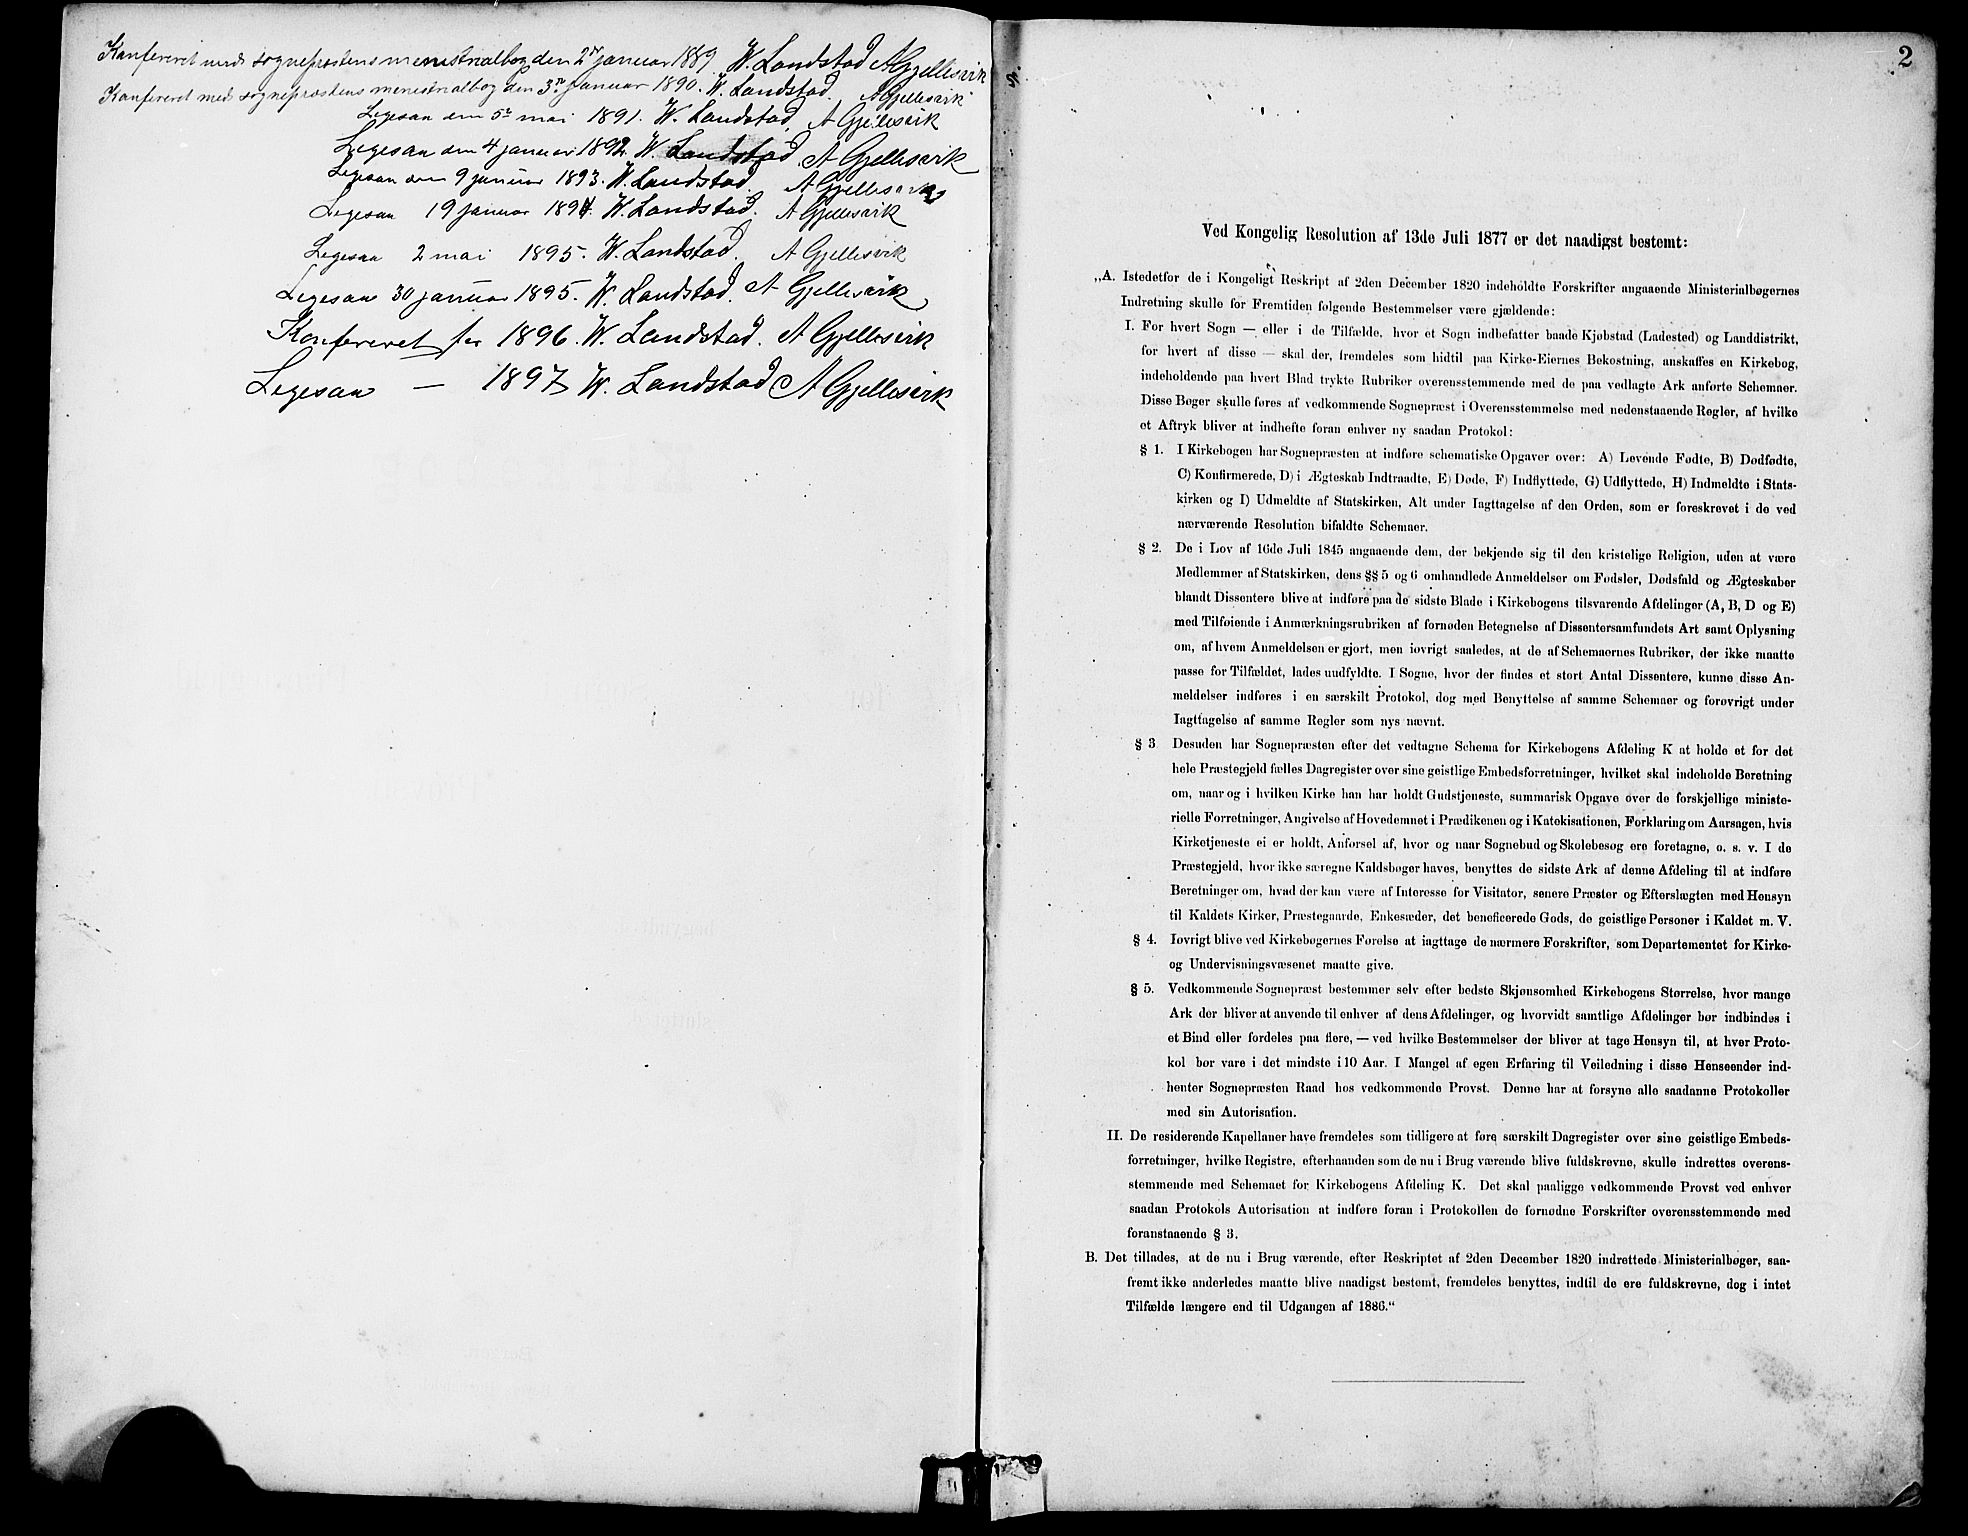 Konfereret med sogneprestens menestrialbog den 2den januar 1889. W. Landstad A Gjellesvik
Konfereret med sognepræstens menestrialbog den 3die januar 1890. W. Landstad. A Gjellesvik
Legesaa den 5te mai 1891. W. Landstad. A Gjellesvik
Legesaa den 4 januar 1892. W. Landstad. A Gjellesvik
Legesaa den 9 januar 1893. W. Landstad. A Gjellesvik
Legesaa 19 januar 1894. W. Landstad. A Gjellesvik
Legesaa 2 mai 1895. W. Landstad. A Gjellesvik
Legesaa 30 januar 1895. W. Landstad. A Gjellesvik
Konfereret for 1896. W. Landstad. A Gjellesvik
Legesaa — 1897 W. Landstad A Gjellesvik
2
Ved Kongelig Resolution af 13de Juli 1877 er det naadigst bestemt:
„A. Istedetfor de i Kongeligt Reskript af 2den December 1820 indeholdte Forskrifter angaaende Ministerialbøgernes
Indretning skulle for Fremtiden følgende Bestemmelser være gjældende:
I. For hvert Sogn — eller i de Tilfælde, hvor et Sogn indbefatter baade Kjøbstad (Ladested) og Landdistrikt,
for hvert af disse — skal der, fremdeles som hidtil paa Kirke-Eiernes Bekostning, anskaffes en Kirkebog,
indeholdende paa hvert Blad trykte Rubriker overensstemmende med de paa vedlagte Ark anførte Schemaer.
Disse Bøger skulle føres af vedkommende Sognepræst i Overensstemmelse med nedenstaaende Regler, af hvilke
et Aftryk bliver at indhefte foran enhver ny saadan Protokol:
§ 1. I Kirkebogen har Sognepræsten at indføre schematiske Opgaver over: A) Levende Fødte, B) Dødfødte,
C) Konfirmerede, D) i Ægteskab Indtraadte, E) Døde, F) Indflyttede, G) Udflyttede, H) Indmeldte i Stats-
kirken og I) Udmeldte af Statskirken, Alt under Iagttagelse af den Orden, som er foreskrevet i de ved
nærværende Resolution bifaldte Schemaer.
§ 2. De i Lov af 16de Juli 1845 angaaende dem, der bekjende sig til den kristelige Religion, uden at være
Medlemmer af Statskirken, dens §§ 5 og 6 omhandlede Anmeldelser om Fødsler, Dødsfald og Ægteskaber
blandt Dissentere blive at indføre paa de sidste Blade i Kirkebogens tilsvarende Afdelinger (A, B, D og E)
med Tilføiende i Anmærkningsrubriken af fornøden Betegnelse af Dissentersamfundets Art samt Oplysning
om, af hvem Anmeldelsen er gjort, men iøvrigt saaledes, at de af Schemaernes Rubriker, der ikke maatte
passe for Tilfældet, lades uudfyldte. I Sogne, hvor der findes et stort Antal Dissentere, kunne disse An-
meldelser indføres i en særskilt Protokol, dog med Benyttelse af samme Schemaer og forøvrigt under
Iagttagelse af samme Regler som nys nævnt.
§ 3 Desuden har Sognepræsten efter det vedtagne Schema for Kirkebogens Afdeling K at holde et for det
hele Præstegjeld fælles Dagregister over sine geistlige Embedsforretninger, hvilket skal indeholde Beretning
om, naar og i hvilken Kirke han har holdt Gudstjeneste, summarisk Opgave over de forskjellige ministe-
rielle Forretninger, Angivelse af Hovedemnet i Prædikenen og i Katekisationen, Forklaring om Aarsagen, hvis
Kirketjeneste ei er holdt, Anførsel af, hvor og naar Sognebud og Skolebesøg ere foretagne, o. s. v. I de
Præstegjeld, hvor ikke særegne Kaldsbøger haves, benyttes de sidste Ark af denne Afdeling til at indføre
Beretninger om, hvad der kan være af Interesse for Visitator, senere Præster og Efterslægten med Hensyn
til Kaldets Kirker, Præstegaarde, Enkesæder, det beneficerede Gods, de geistlige Personer i Kaldet m. V.
§ 4. Iøvrigt blive ved Kirkebøgernes Førelse at iagttage de nærmere Forskrifter, som Departementet for Kirke-
og Undervisningsvæsenet maatte give.
§ 5. Vedkommende Sognepræst bestemmer selv efter bedste Skjønsomhed Kirkebogens Størrelse, hvor mange
Ark der bliver at anvende til enhver af dens Afdelinger, og hvorvidt samtlige Afdelinger bør indbindes i
et Bind eller fordeles paa flere, — ved hvilke Bestemmelser der bliver at tage Hensyn til, at hver Proto-
kol bør vare i det mindste i 10 Aar. I Mangel af egen Erfaring til Veiledning i disse Henseender ind-
henter Sognepræsten Raad hos vedkommende Provst. Denne har at forsyne alle saadanne Protokoller
med sin Autorisation.
II. De residerende Kapellaner have fremdeles som tidligere at føre særskilt Dagregister over sine geistlige Embeds-
forretninger, hvilke Registre, efterhaanden som de nu i Brug værende blive fuldskrevne, skulle indrettes overens-
stemmende med Schemaet for Kirkebogens Afdeling K. Det skal paaligge vedkommende Provst ved enhver
saadan Protokols Autorisation at indføre foran i Protokollen de fornødne Forskrifter overensstemmende med
foranstaaende § 3.
B. Det tillades, at de nu i Brug værende, efter Reskriptet af 2den December 1820 indrettede Ministerialbøger, saa-
fremt ikke anderledes maatte blive naadigst bestemt, fremdeles benyttes, indtil de ere fuldskrevne, dog i intet
Tilfælde længere end til Udgangen af 1886.“